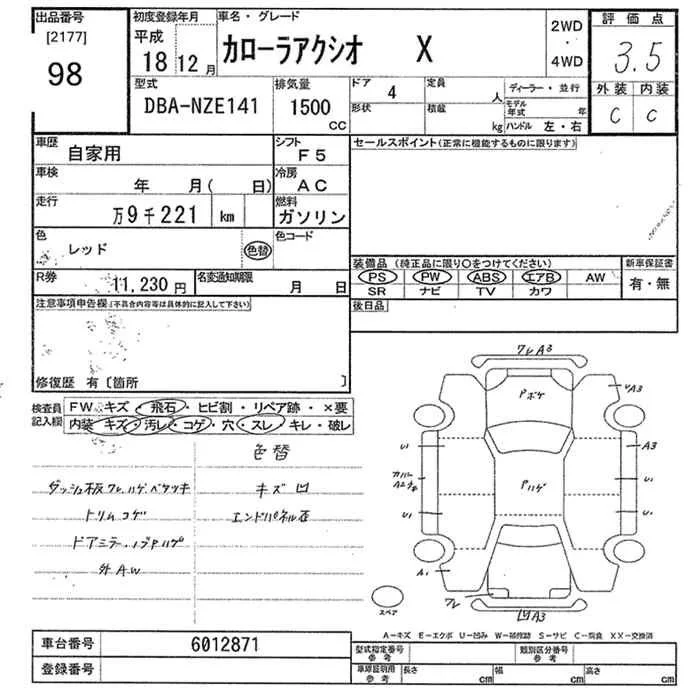 出品番号
[2177]
98
初度登録年月
平成
18 12月
車名・グレード
カローラアクシオ X
2WD
・
4WD
評価点
3.5
外装 内装
C C
型式
DBA-NZE141
排気量
1500
CC
ドア
4
形状
定員
人
積載
kg
ディーラー・並行
モデル年式 年
ハンドル 左・右
車歴
自家用
シフト
F5
車検
年 月( 日)
冷房
AC
走行
万9千221 km
燃料
ガソリン
色
レッド
色替
色コード
R券
11,230円
名変通知期限
月 日
セールスポイント(正常に機能するものに限ります)
装備品(純正品に限り○をつけてください)
PS PW ABS エアB AW
SR ナビ TV カワ
新車保証書
有・無
後日品
注意事項申告欄(不具合内容等は具体的に記入して下さい)
修復歴 有〔箇所 〕
検査員記入欄
FW キズ・飛石・ヒビ割・リペア跡・×要
内装 キズ・汚レ・コゲ・穴・スレ・キレ・破レ
色替
ダッシュ板ワレ.ハゲ.ベタツキ
キズ凹
トリムコゲ
エンドパネル歪
外AW
ワレA3
Pボケ
A3
U1
Pハゲ
A3
U1
U1
U1
A1
ワレ
A3
スペア
A-キズ E-エクボ U-凹み W-補修跡 S-サビ C-腐食 XX-交換済
車台番号
6012871
登録番号
型式指定番号
参考
類別区分番号
参考
車庫証明用
参考
長さ cm
幅 cm
高さ cm